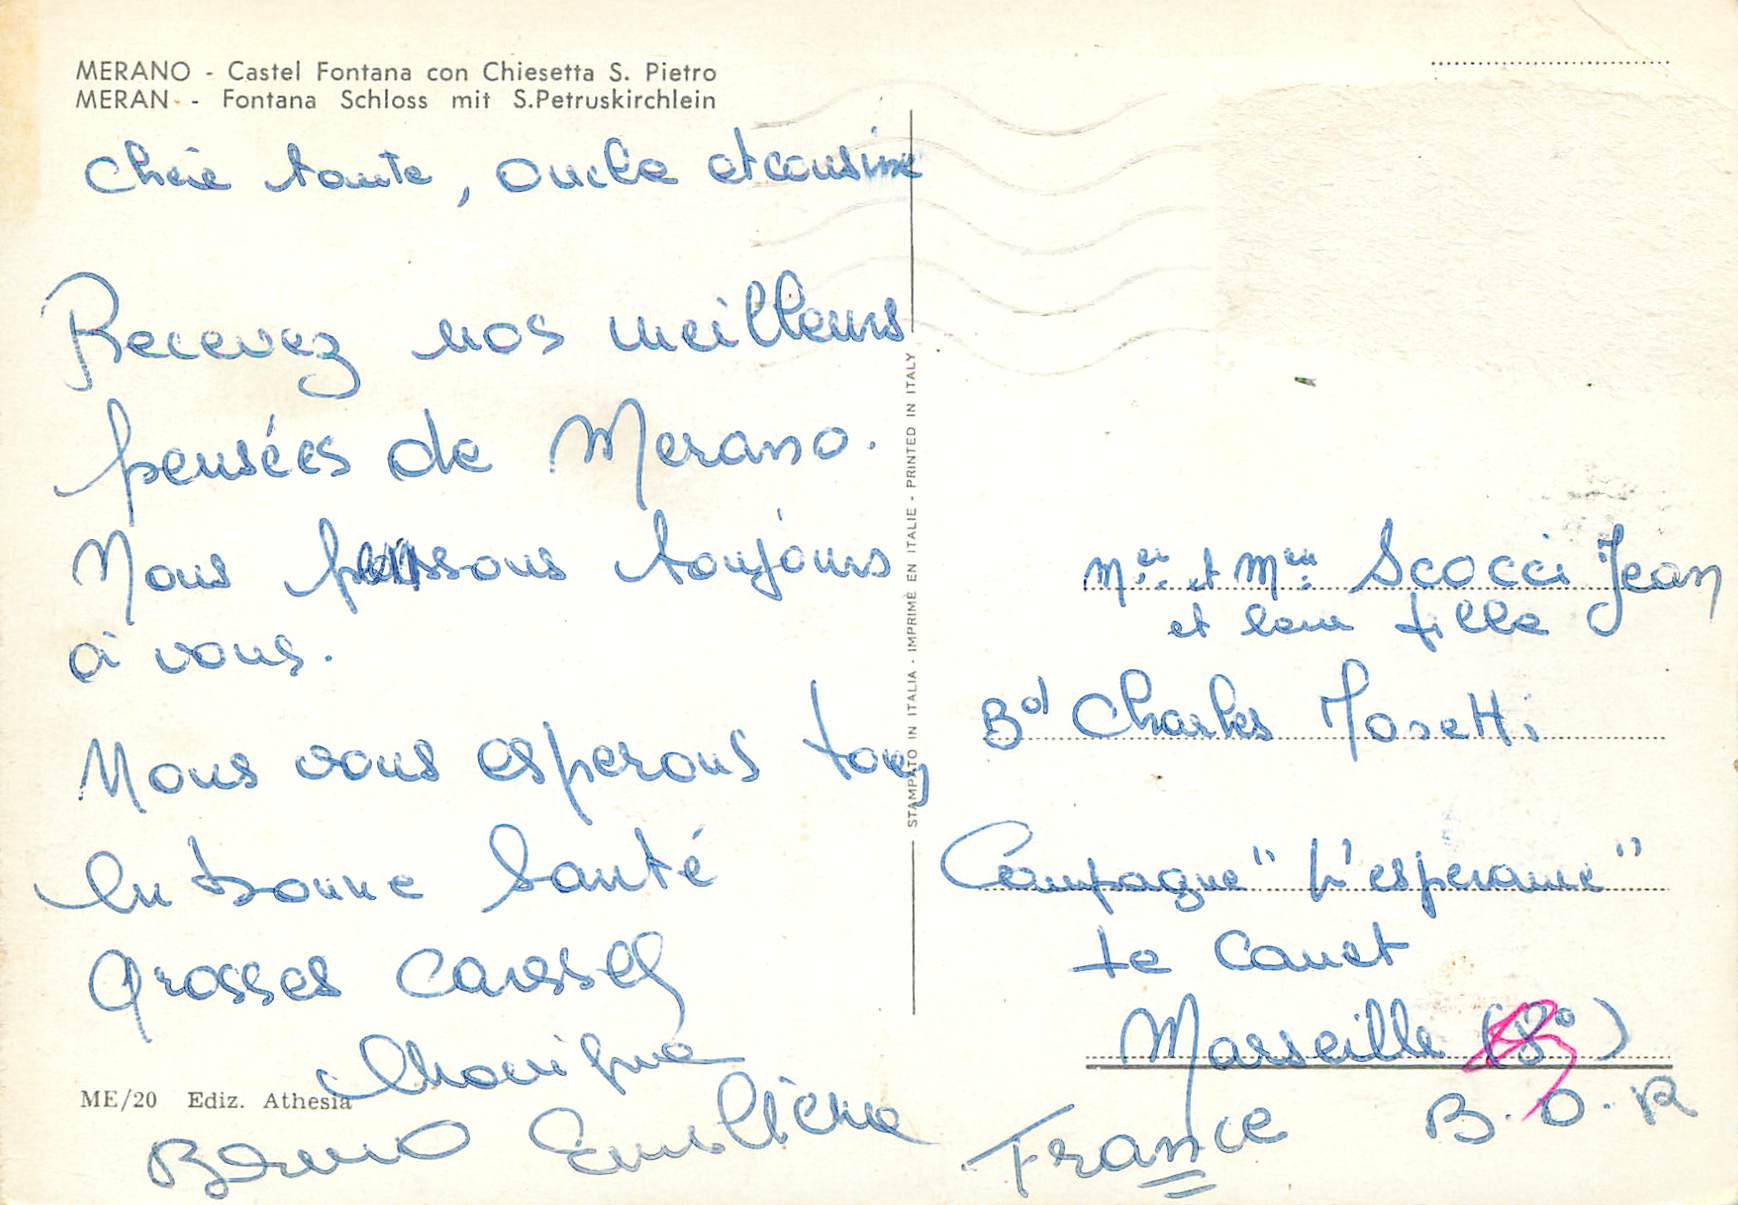 MERANO - Castel Fontana con Chiesetta S. Pietro
MERAN - Fontana Schloss mit S.Petruskirchlein
Chère tante, oncle et cousine
Recevez nos meilleurs
pensées de Merano.
Nous pensons toujours
à vous.
Nous vous esperons tous
en bonne santé
Grosses caresses
Monique
Bruno
ME/20 Ediz. Athesia
STAMPATO IN ITALIA - IMPRIMÉ EN ITALIE - PRINTED IN ITALY
et Scocci Jean
et leur fille
Bd Charles Mosetti
Campagne "L'esperance"
Le Canet
Marseille
France B.D.R